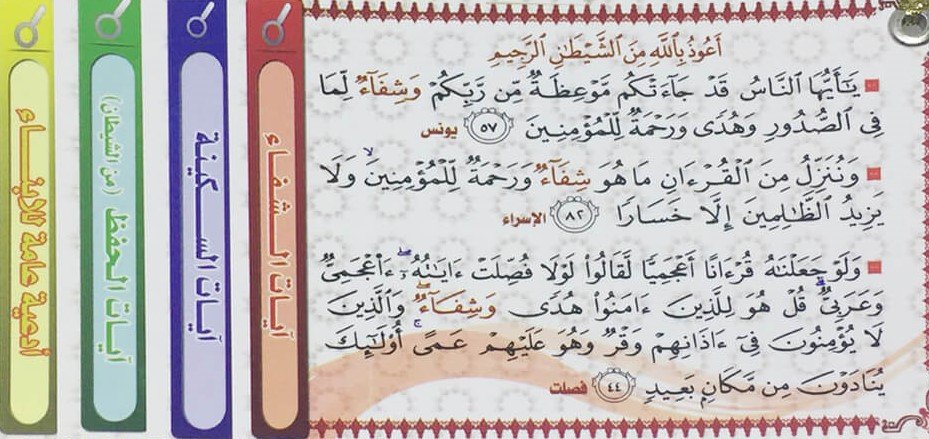 أَعُوذُ بِاللَّهِ مِنَ الشَّيْطَٰنِ الرَّجِيمِ
يَٰٓأَيُّهَا ٱلنَّاسُ قَدْ جَآءَتْكُم مَّوْعِظَةٌ مِّن رَّبِّكُمْ وَشِفَآءٌ لِّمَا
فِى ٱلصُّدُورِ وَهُدًى وَرَحْمَةٌ لِّلْمُؤْمِنِينَ ٥٧ يونس
وَنُنَزِّلُ مِنَ ٱلْقُرْءَانِ مَا هُوَ شِفَآءٌ وَرَحْمَةٌ لِّلْمُؤْمِنِينَ ۙ وَلَا
يَزِيدُ ٱلظَّٰلِمِينَ إِلَّا خَسَارًا ٨٢ الإسراء
وَلَوْ جَعَلْنَٰهُ قُرْءَانًا أَعْجَمِيًّا لَّقَالُوا۟ لَوْلَا فُصِّلَتْ ءَايَٰتُهُۥٓ ۖ ءَا۬عْجَمِىٌّ
وَعَرَبِىٌّ ۗ قُلْ هُوَ لِلَّذِينَ ءَامَنُوا۟ هُدًى وَشِفَآءٌ ۖ وَٱلَّذِينَ
لَا يُؤْمِنُونَ فِىٓ ءَاذَانِهِمْ وَقْرٌ وَهُوَ عَلَيْهِمْ عَمًى ۚ أُو۟لَٰٓئِكَ
يُنَادَوْنَ مِن مَّكَانٍۭ بَعِيدٍ ٤٤ فصلت
آيات الشفاء
آيات السكينة
آيات الحفظ (من الشيطان)
أدعية عامة للأبناء